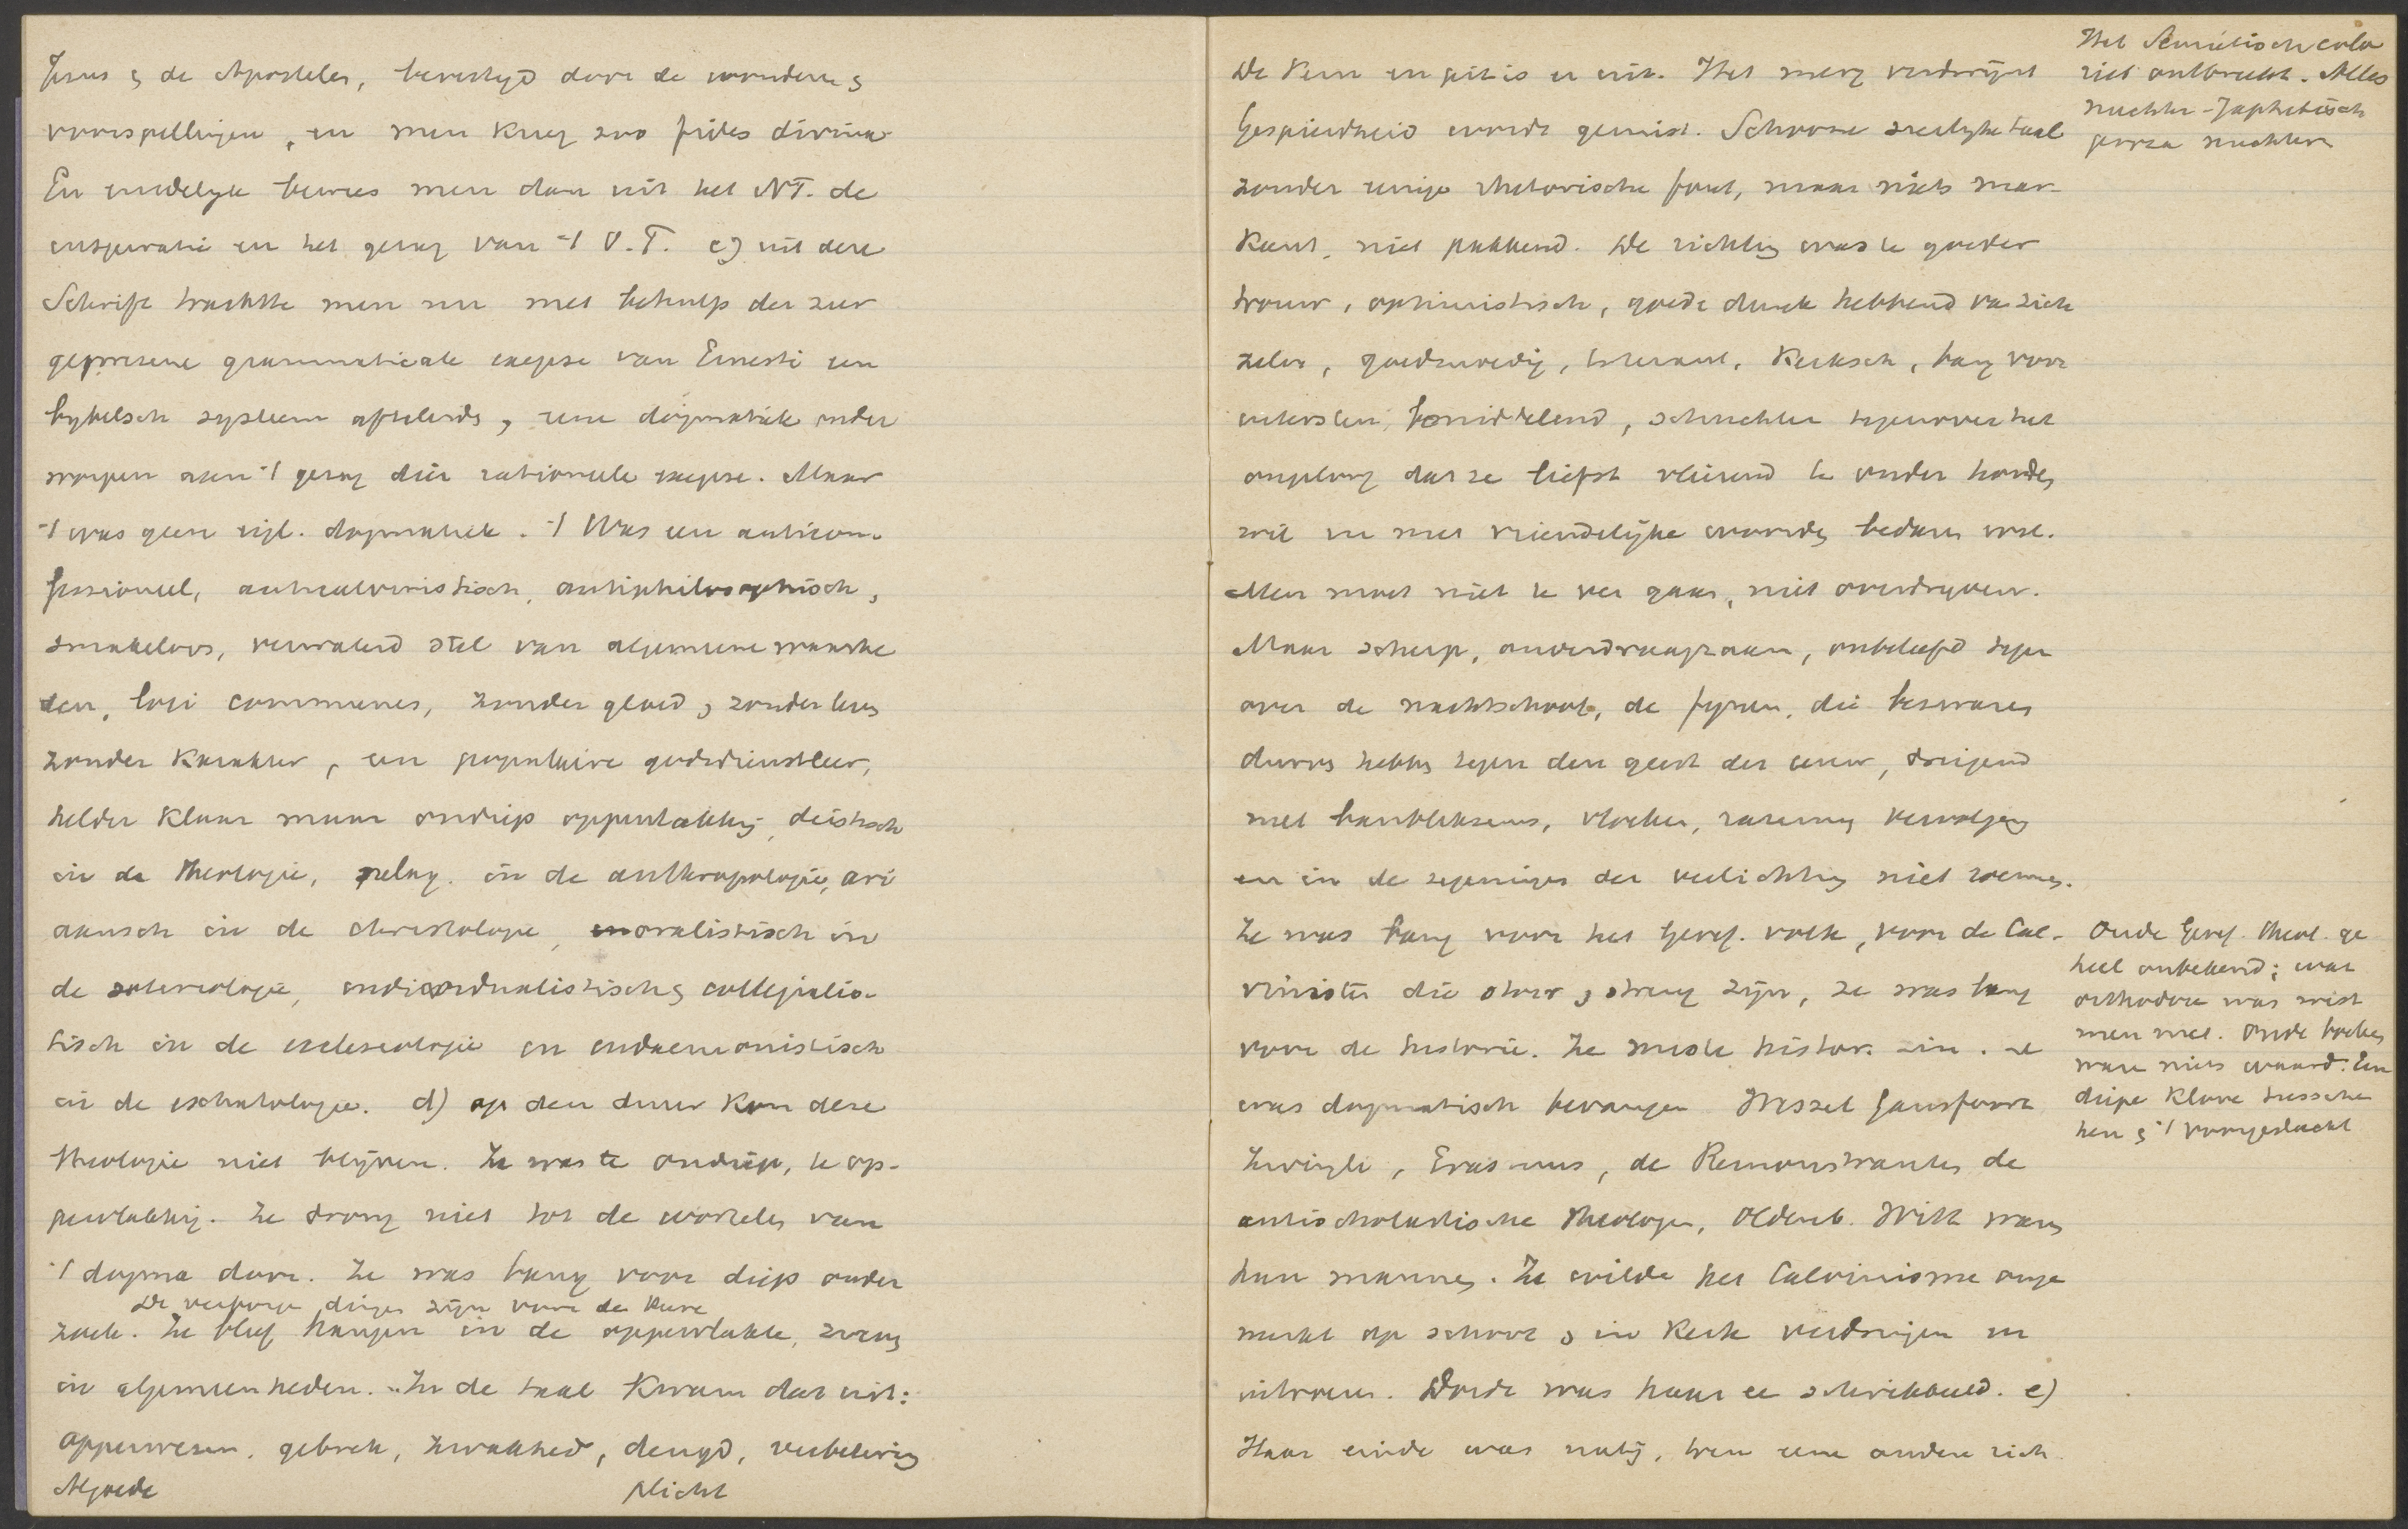 Jezus & de Apostelen, bevestigd door de wonderen &
voorspellingen, en men kreeg zoo fides divina.
En eindelyk bewees men dan uit het NT. de
inspiratie en het gezag van 't O.T. c) uit deze
Schrift trachtte men nu met behulp der zoo
geprezene grammaticale exegese van Ernesti een
bybelsch systeem afteleiden, eene dogmatiek onder
worpen aan 't gezag dier rationeele exegese. Maar
't was geen eigl. dogmatiek. 't Was een anticon-
fessioneel, anticalvinistisch, antiphilosophisch,
smakeloos, verwaterd stel van algemeene waarhe
den, loci communes, zonder gloed, zonder leven
zonder karakter, een populaire godsdienstleer,
helder klaar maar ondiep oppervlakkig, deistisch
in de theologie, pelag. in de anthropologie, ari
aansch in de christologie, moralistisch in
de soteriologie, individualistisch & collegialis-
tisch in de ecclesiologie en eudaemonistisch
in de eschatologie. d) op den duur kon deze
theologie niet blijven. Ze was te ondiep, te op-
pervlakkig. Ze drong niet tot de wortelen van
't dogma door. Ze was bang voor diep onder
De verborgen dingen zijn voor den Heere
zoek. Ze bleef hangen in de oppervlakte, zweeg
in algemeenheden. In de taal kwam dat uit:
opperwezen, gebrek, zwakheid, deugd, verbetering
Algoede plicht
De kern en pit is er uit. Het merg verdwijnt
Gespierdheid wordt gemist. Schoone sierlyke taal
zonder eenige rhetorische fout, maar niets mar-
kant, niet pakkend. De richting was te goeder
trouw, optimistisch, goede dunk hebbend van zich
zelve, goedmoedig, tolerant, kerksch, bang voor
uitersten, bemiddelend, schuchter tegenover het
ongeloof dat ze liefst vleiend te onder houden
wil en met vriendelijke woorden bedaren wil.
Men moet niet te ver gaan, niet overdryven.
Maar scherp, onverdraagzaam, onbeleefd tegen
over de nachtschool, de fynen, die bezwaren
durven hebben tegen den geest der eeuw, dreigend
met banbliksems, vloeken, razerny vervolging
en in de zegeningen der verlichting niet roemen.
Ze was bang voor het Geref. volk, voor de Cal-
vinisten die stoer & streng zijn, ze was bang
voor de historie. Ze miste histor. zin. Ze
was dogmatisch bevangen Wessel Gansfoort
Zwingli, Erasmus, de Remonstranten de
antischolastische theologen, Oldenb. Witt waren
hun mannen. Ze wilde het Calvinisme onge
merkt op school & in kerk verdringen en
uitroeien. Dordt was haar een schrikbeeld. e)
Haar einde was nabij, toen eene andere rich
Het Semietisch colo
riet ontbreekt. Alles
nuchter-Japhetisch
proza nuchter
Oude Geref. theol. ge
heel onbekend; wat
orthodox was wist
men niet. Oude boeken
ware niets waard. Een
diepe klove tusschen
hen & 't voorgeslacht